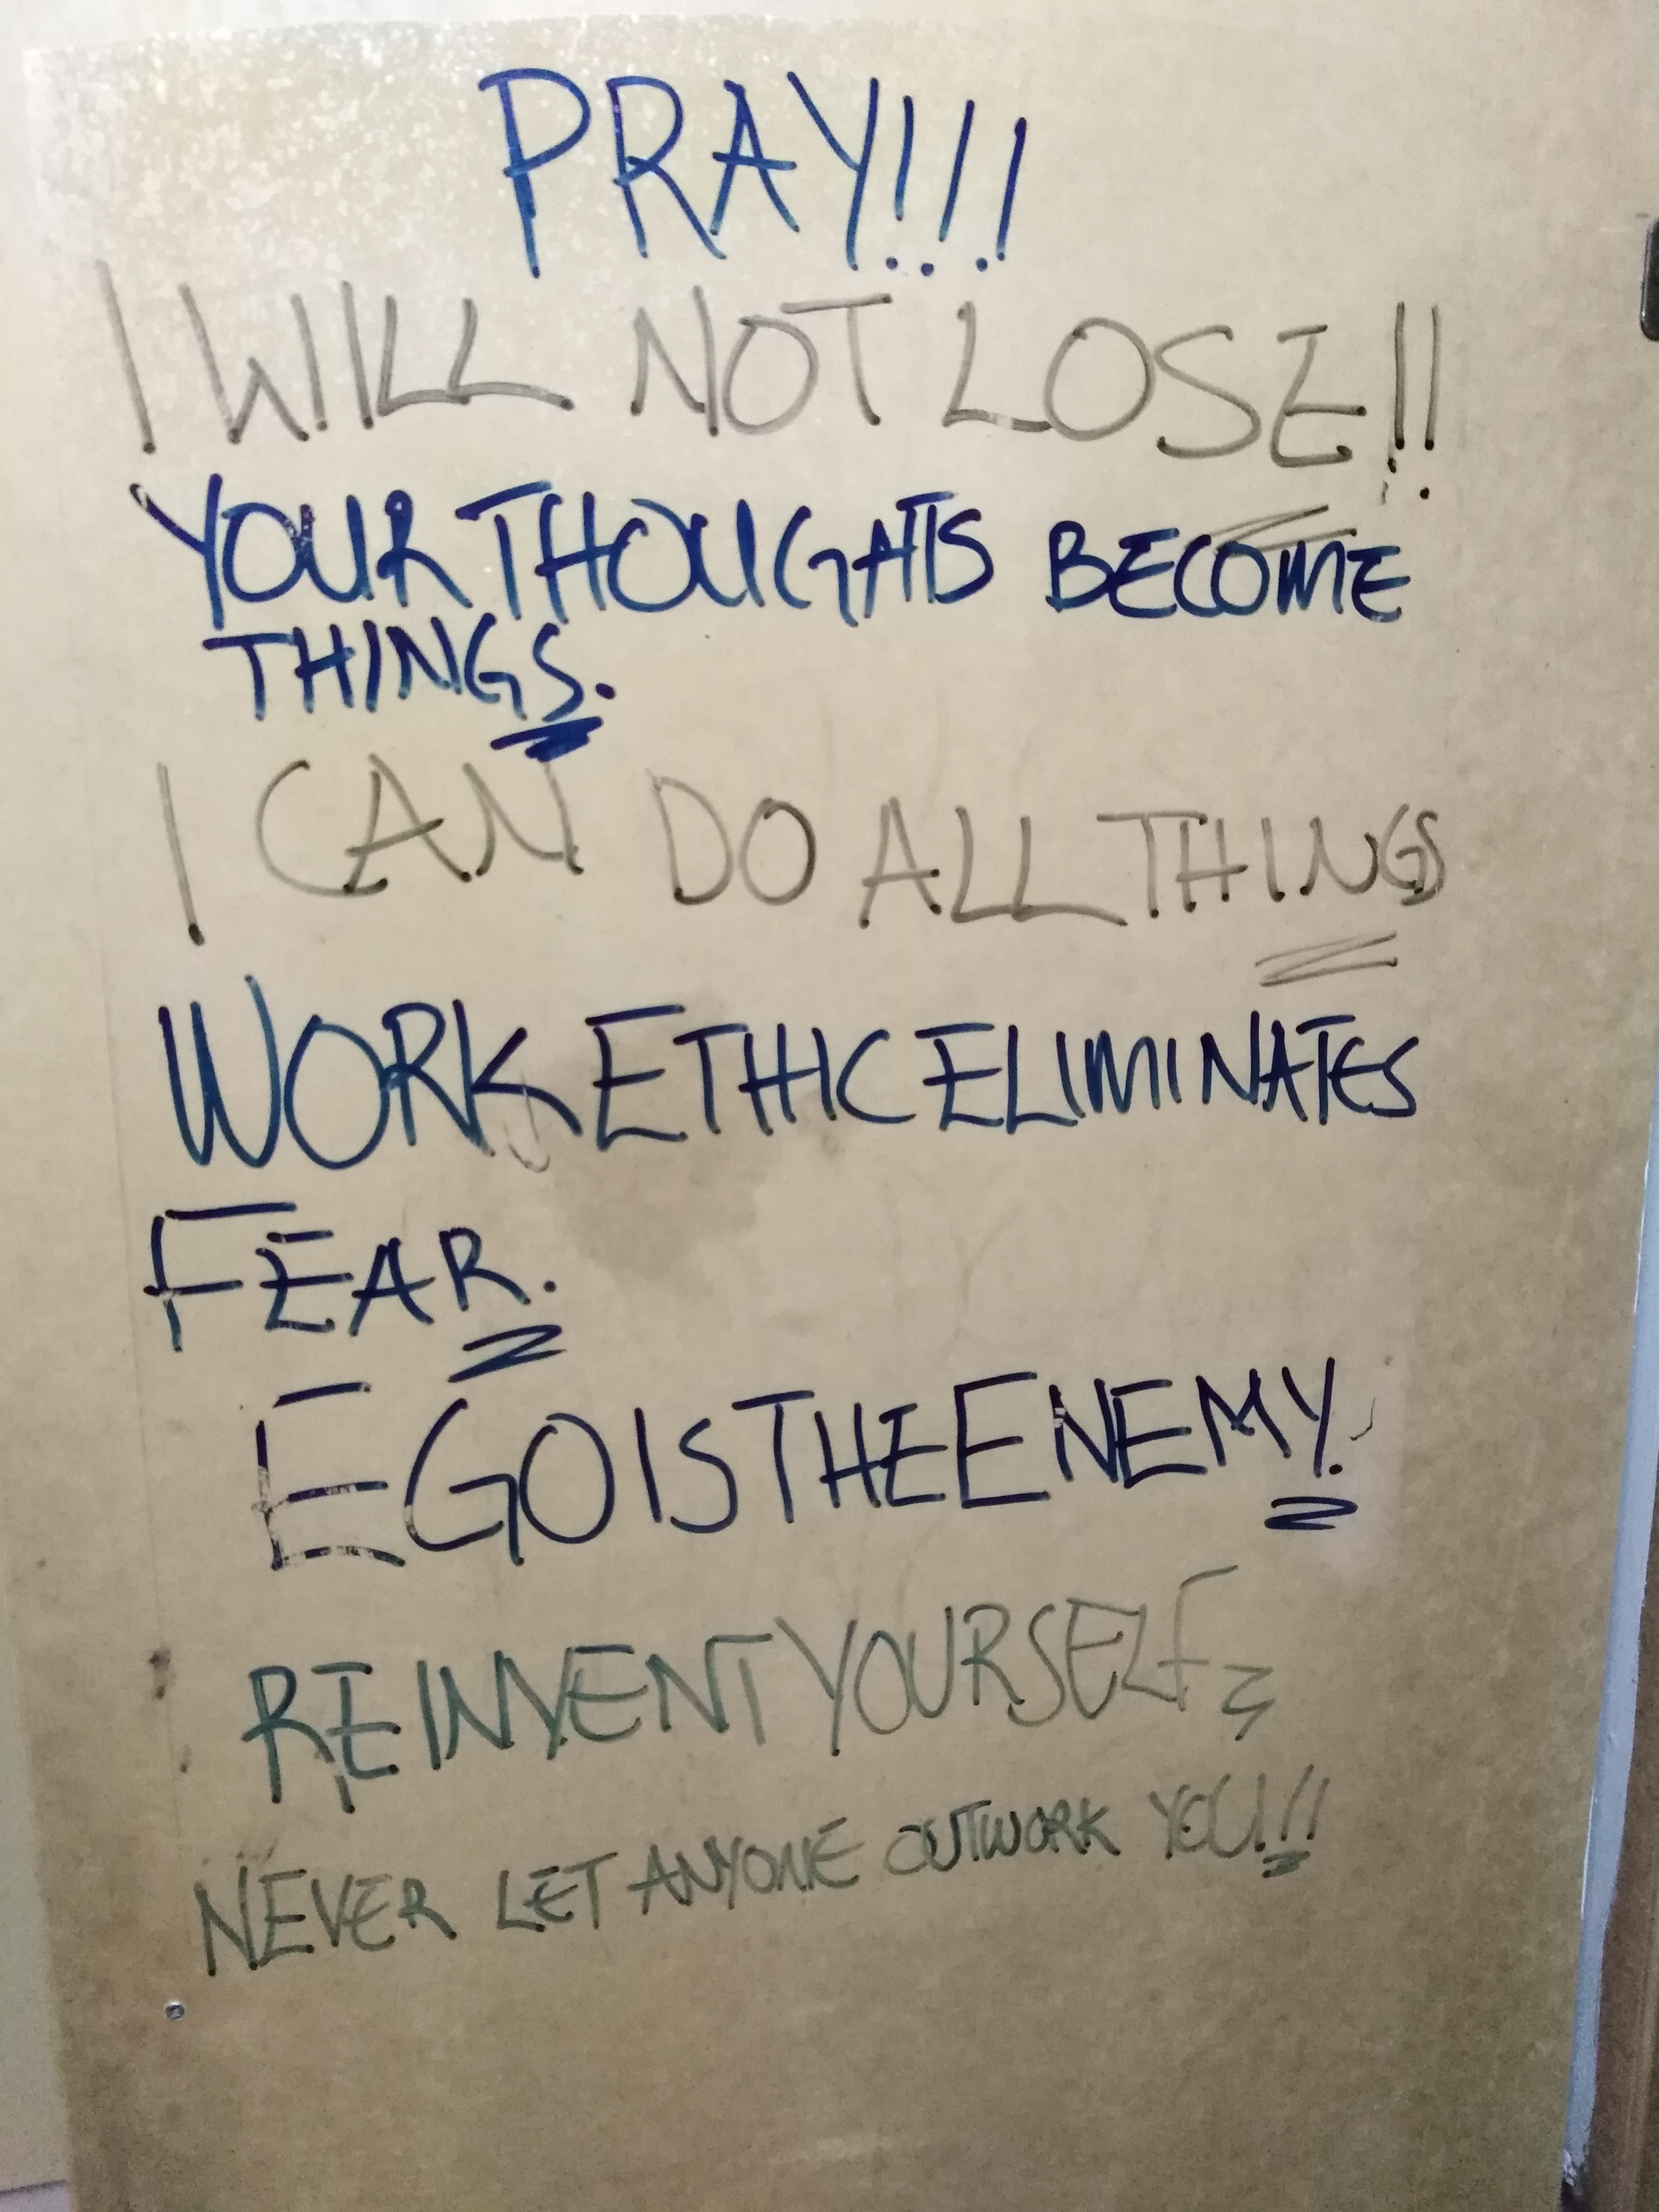 PRAY!!!
I WILL NOT LOSE!!
YOUR THOUGHTS BECOME
THINGS.
I CAN DO ALL THINGS
WORK ETHIC ELIMINATES
FEAR.
EGO IS THE ENEMY.
REINVENT YOURSELF
NEVER LET ANYONE OUTWORK YOU!!!